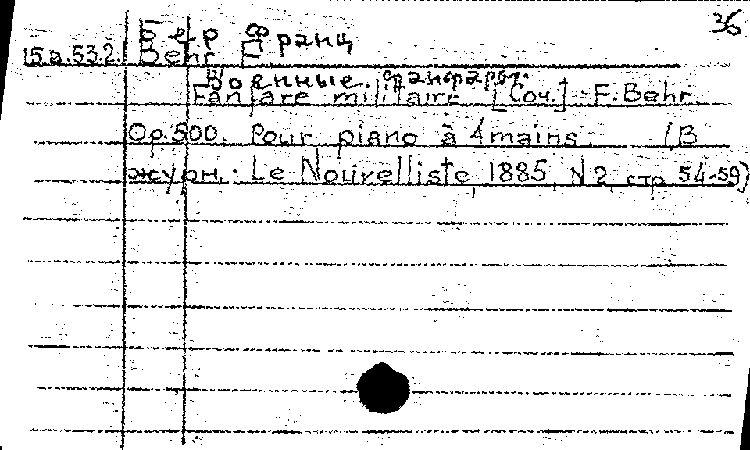 36
Бер Франц
15а.532. Behr F.
Военные фанфары.
Fanfare militaire [Соч.] F. Behr.
Op. 500. Pour piano à 4 mains. (В
журн.: Le Nouvelliste, 1885, N 2, стр. 54-59)